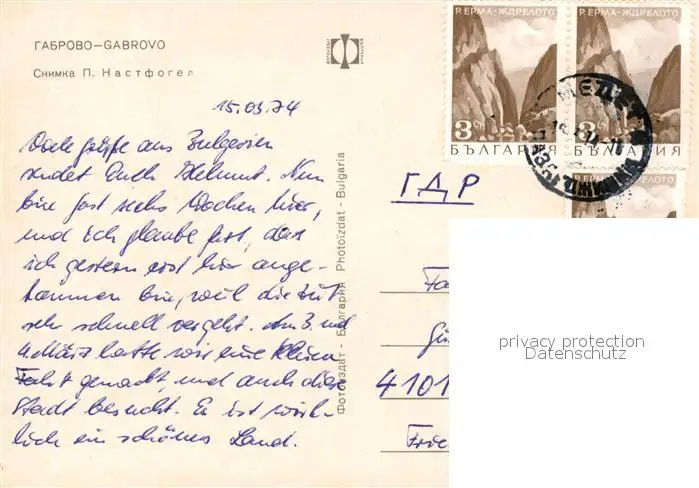 ГАБРОВО–GABROVO
Снимка П. Настфогел
Р. ЕРМА-ЖДРЕЛОТО
Р. ЕРМА-ЖДРЕЛОТО
3
БЪЛГАРИЯ
3
БЪЛГАРИЯ
МЕДЕТ
15.03.74
Viele Grüße aus Bulgarien
sendet Euch Helmut. Nun
bin fast sechs Wochen hier,
und ich glaube fest, das
ich gestern erst hier ange-
kommen bin, weil die Zeit
sehr schnell vergeht. Am 3. und
4. März hatte wir eine kleine
Fahrt gemacht, und auch diese
Stadt besucht. Es ist wirk-
lich ein schönes Land.
Фотоиздат - България Photoïzdat - Bulgaria
ГДР
4101
privacy protection
Datenschutz